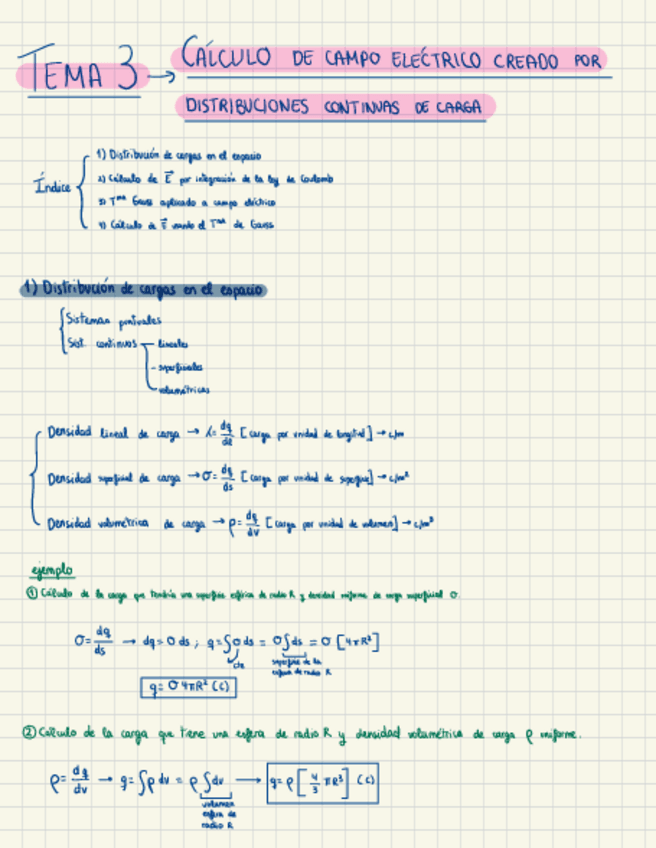 TEMA 3 → CÁLCULO DE CAMPO ELÉCTRICO CREADO POR
DISTRIBUCIONES CONTINUAS DE CARGA
Índice
1) Distribución de cargas en el espacio
2) Cálculo de E⃗ por integración de la ley de Coulomb
3) Tᵐᵃ Gauss aplicado a campo eléctrico
4) Cálculo de E⃗ usando el Tᵐᵃ de Gauss
1) Distribución de cargas en el espacio
Sistemas puntuales
Sist. continuos - lineales
- superficiales
- volumétricas
Densidad lineal de carga → λ = dq/dl [carga por unidad de longitud] → c/m
Densidad superficial de carga → σ = dq/ds [carga por unidad de superficie] → c/m²
Densidad volumétrica de carga → ρ = dq/dv [carga por unidad de volumen] → c/m³
ejemplo
① Cálculo de la carga que tendría una superficie esférica de radio R y densidad uniforme de carga superficial σ.
σ = dq/ds → dq = σ ds ; q = ∫σ ds = σ∫ds = σ [4πR²]
cte
superficie de la
esfera de radio R
q = σ 4πR² (C)
② Cálculo de la carga que tiene una esfera de radio R y densidad volumétrica de carga ρ uniforme.
ρ = dq/dv → q = ∫ρ dv = ρ ∫dv → q = ρ [4/3 πR³] (C)
volumen
esfera de
radio R